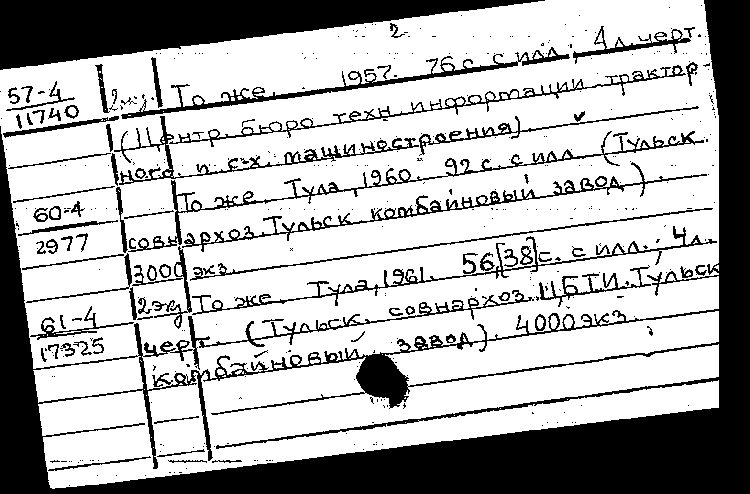 2
57-4 2экз. То же. 1957. 76 с. с илл.; 4 л. черт.
11740 (Центр. бюро техн. информации трактор-
ного и с-х. машиностроения).
60-4 То же. Тула, 1960. 92 с. с илл. (Тульск.
2977 совнархоз. Тульск. комбайновый завод).
3000 экз.
61-4 2экз То же. Тула, 1961. 56[38]с. с илл.; 4 л.
17325 черт. (Тульск. совнархоз. ЦБТИ. Тульск
комбайновый завод). 4000 экз.